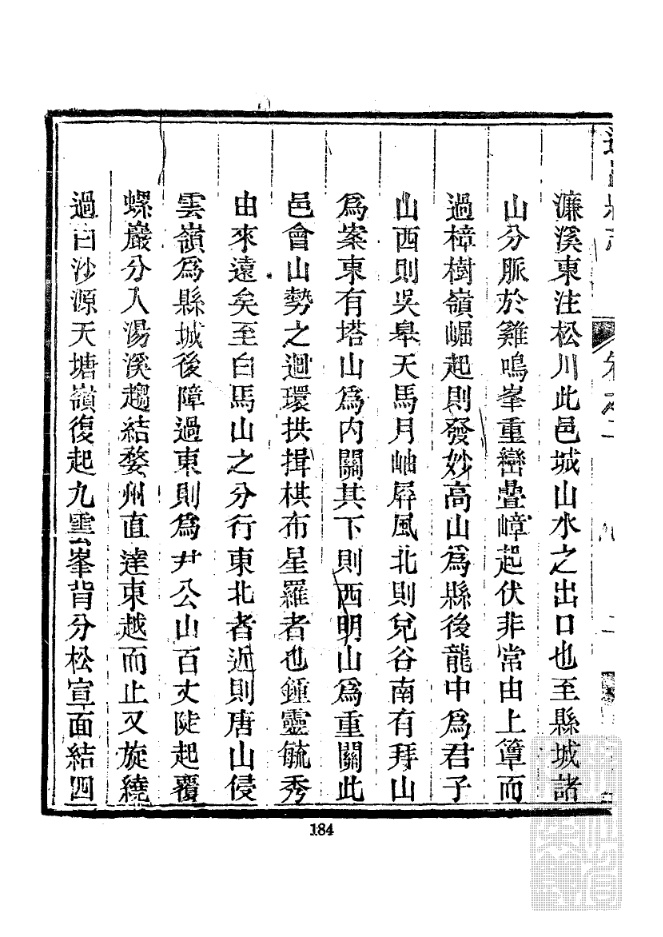 濂溪東注松川此邑城山水之出口也至縣城諸
山分脈於雞鳴峯重巒疊嶂起伏非常由上簞而
過樟樹嶺崛起則發妙高山爲縣後龍中爲君子
山西則吳皋天馬月岫屛風北則兒谷南有拜山
爲案東有塔山爲內關其下則西明山爲重關此
邑會山勢之迴環拱揖棋布星羅者也鍾靈毓秀
由來遠矣至白馬山之分行東北者近則唐山侵
雲嶺爲縣城後障過東則爲尹公山百丈陡起覆
螺巖分入湯溪趨結婺州直達東越而止又旋繞
過白沙源天塘嶺復起九雲峯背分松宣面結四
184